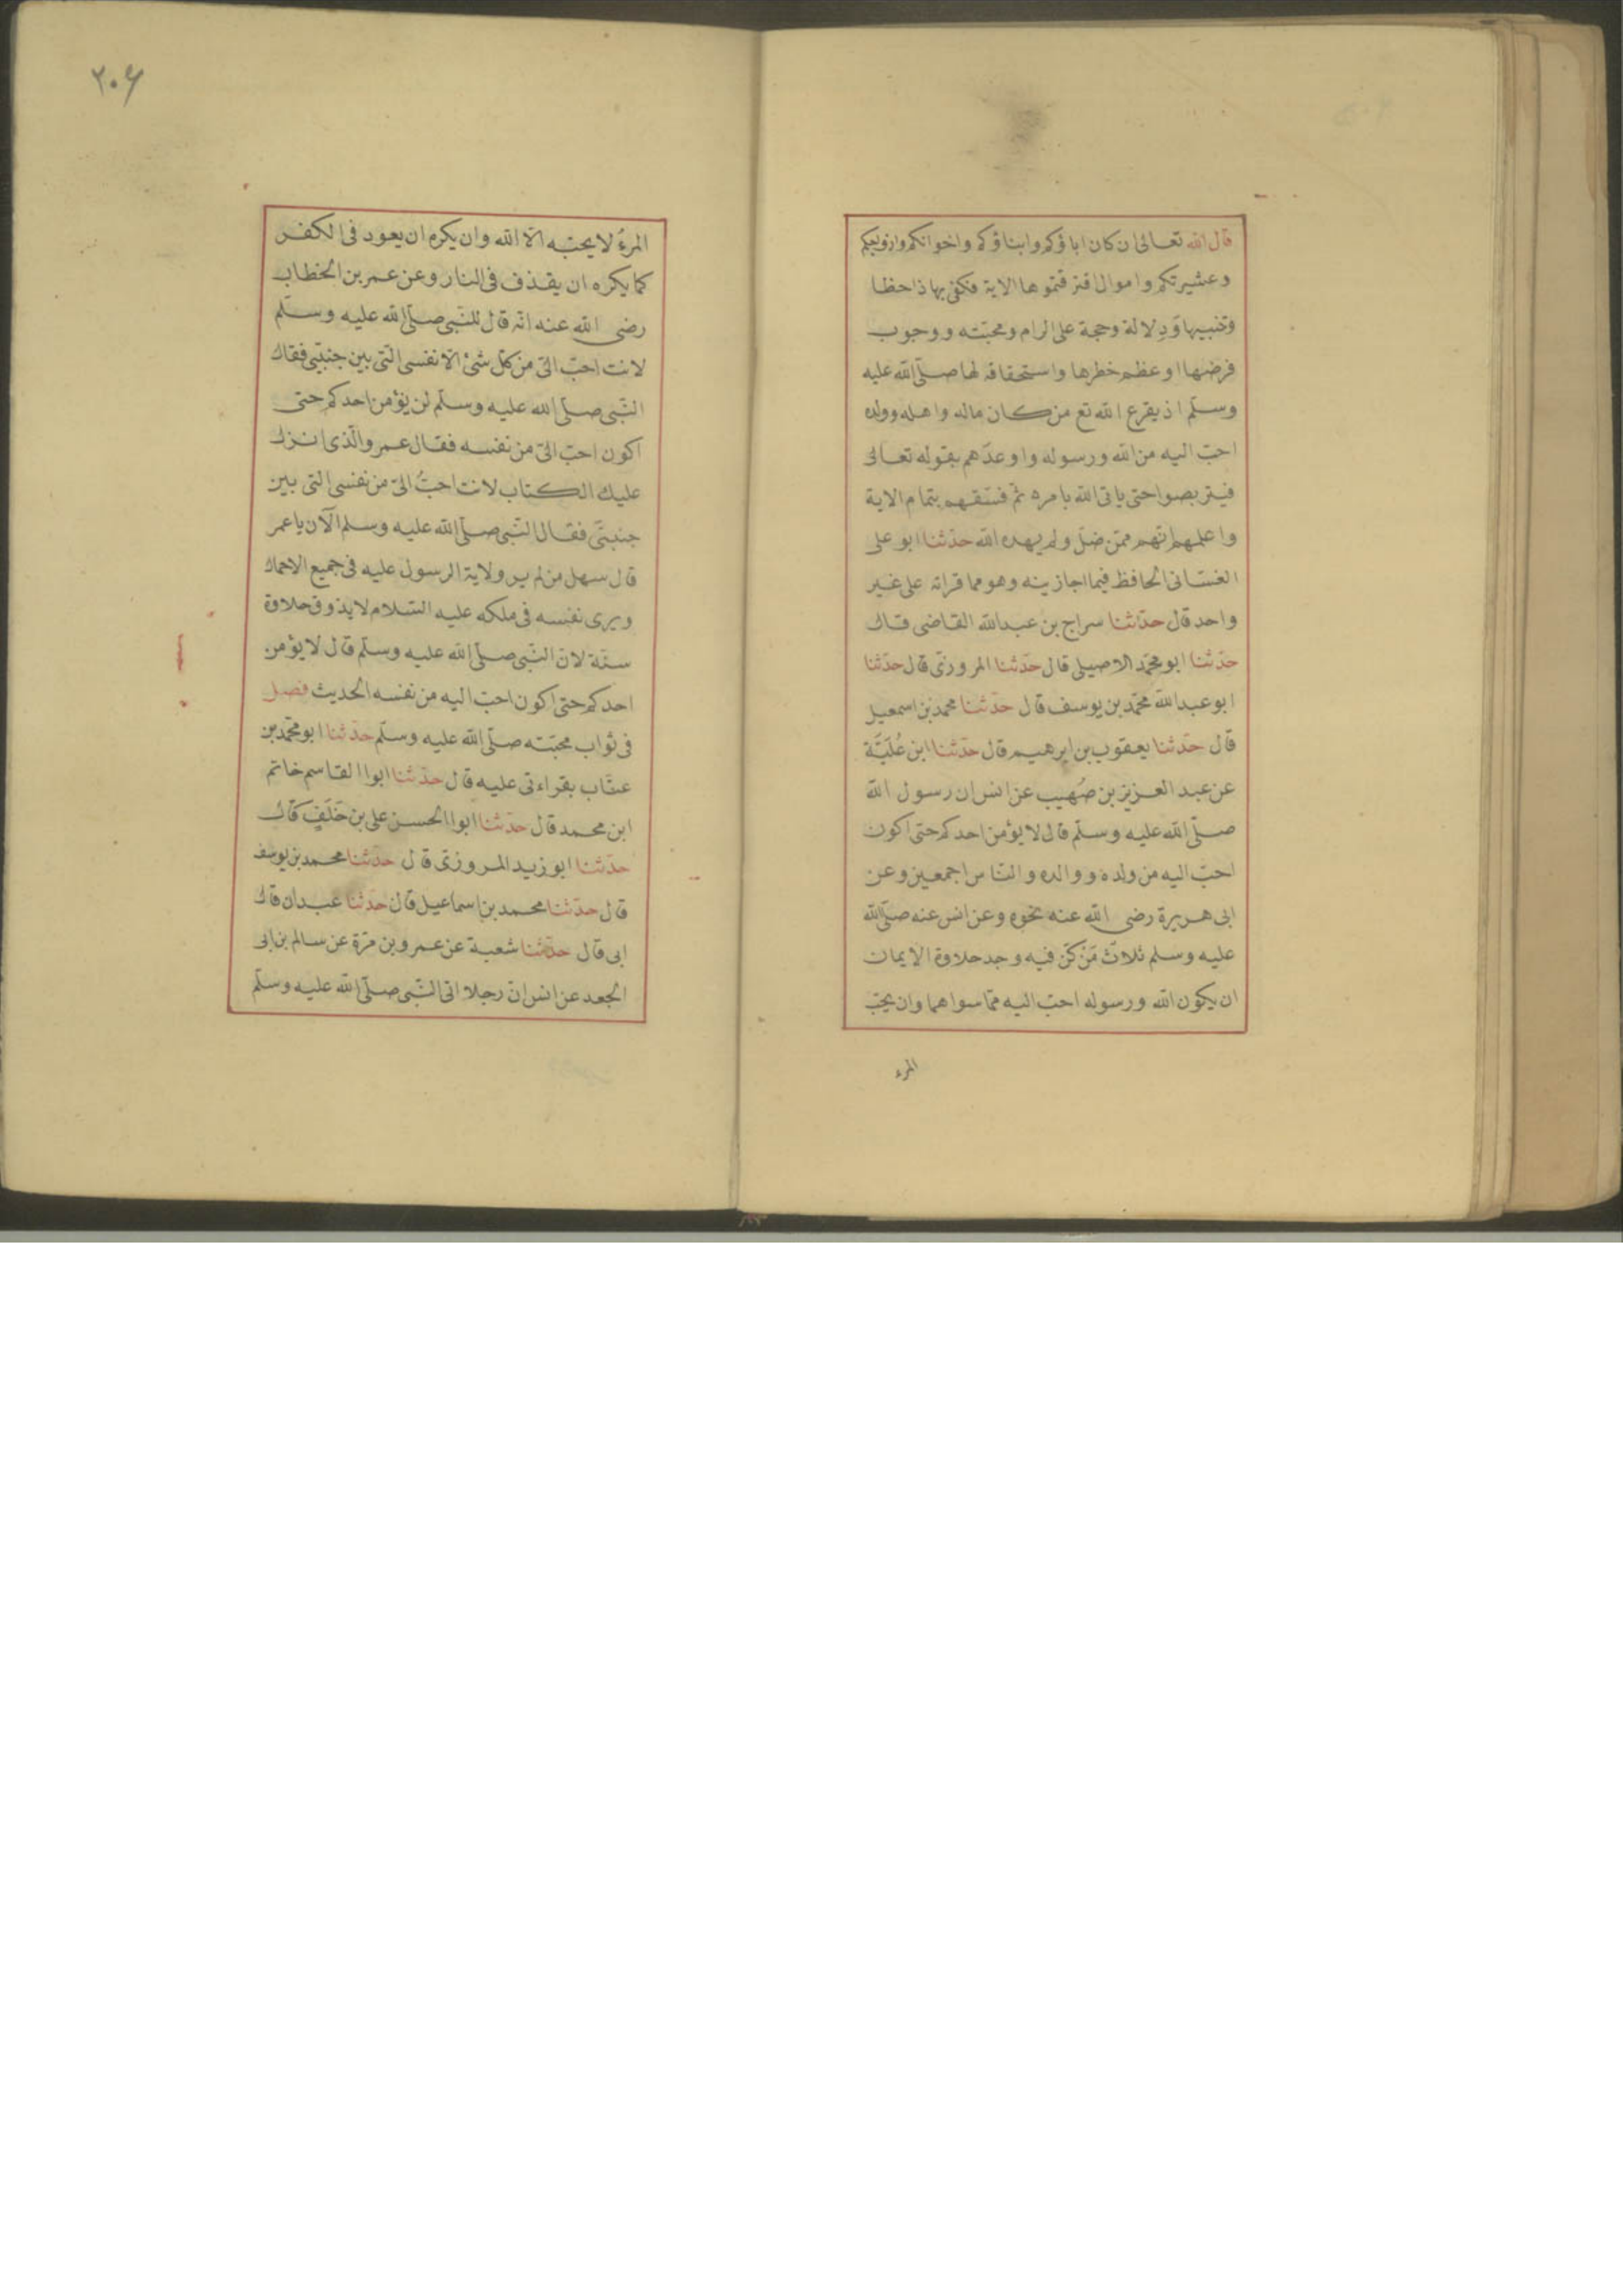 قال الله تعالى ان كان اباؤكم وابناؤكم واخوانكم وازواجكم
وعشيرتكم واموال اقترفتموها الاية فكفى بهاذا حظا
وتنبيها وَدِلالة وحجة على الزام ومحبّته ووجوب
فرضها اوعظم خطرها واستحقاقه لها صلّى الله عليه
وسلّم اذ يقرع الله تع من كان ماله واهله وولده
احبّ اليه من الله ورسوله واوعدّهم بقوله تعالى
فيتربصوا حتى ياتى الله بامره ثمّ فسّقهم بتمام الاية
واعلمهم انّهم ممّن ضلّ ولم يهده الله حدّثنا ابو على
الغسّانى الحافظ فيما اجازينه وهو مما قراته على غير
واحد قال حدّثنا سراج بن عبد الله القاضى قال
حدّثنا ابو محمّد الاصيلى قال حدّثنا المروزىّ قال حدّثنا
ابو عبد الله محمّد بن يوسف قال حدّثنا محمد بن اسمعيل
قال حدّثنا يعقوب بن ابرهيم قال حدّثنا ابن عُلَيَّة
عن عبد العزيز بن صُهيب عن انس ان رسول الله
صلّى الله عليه وسلّم قال لا يؤمن احدكم حتى اكون
احبّ اليه من ولده ووالده والنّاس اجمعين وعن
ابى هريرة رضى الله عنه نحوه وعن انس عنه صلّى الله
عليه وسلم ثلاثٌ مَنْ كنّ فيه وجد حلاوة الايمان
ان يكون الله ورسوله احبّ اليه ممّا سواهما وان يحبّ
المرء
٢٠۶
المرءُ لا يحبّه الّا الله وان يكره ان يعود فى الكفر
كما يكره ان يقذف فى النار وعن عمر بن الخطاب
رضى الله عنه انّه قال للنّبى صلّى الله عليه وسلّم
لانت احبّ الىّ من كلّ شئ الّا نفسى الّتى بين جنبىّ فقال
النّبى صلّى الله عليه وسلّم لن يؤمن احدكم حتى
اكون احبّ الىّ من نفسه فقال عمر والّذى انزل
عليك الكتاب لانت احبُّ الىّ من نفسى التى بين
جنبىّ فقال النّبى صلّى الله عليه وسلم الآن يا عمر
قال سهل من لم ير ولاية الرسول عليه فى جميع الاحوال
ويرى نفسه فى ملكه عليه السّلام لا يذوق حلاوة
سنّة لانّ النّبى صلّى الله عليه وسلّم قال لا يؤمن
احدكم حتى اكون احبّ اليه من نفسه الحديث فصل
فى ثواب محبّته صلّى الله عليه وسلّم حدّثنا ابو محمّد بن
عتّاب بقراءتى عليه قال حدّثنا ابوا القاسم خاتم
ابن محمد قال حدّثنا ابوا الحسن على بن خَلَفٍ قال
حدّثنا ابو زيد المروزىّ قال حدّثنا محمد بن يوسف
قال حدّثنا محمد بن اسماعيل قال حدّثنا عبدان قال
ابى قال حدّثنا شعبة عن عمرو بن مرّة عن سالم بن ابى
الجعد عن انس انّ رجلا اتى النّبى صلّى الله عليه وسلّم